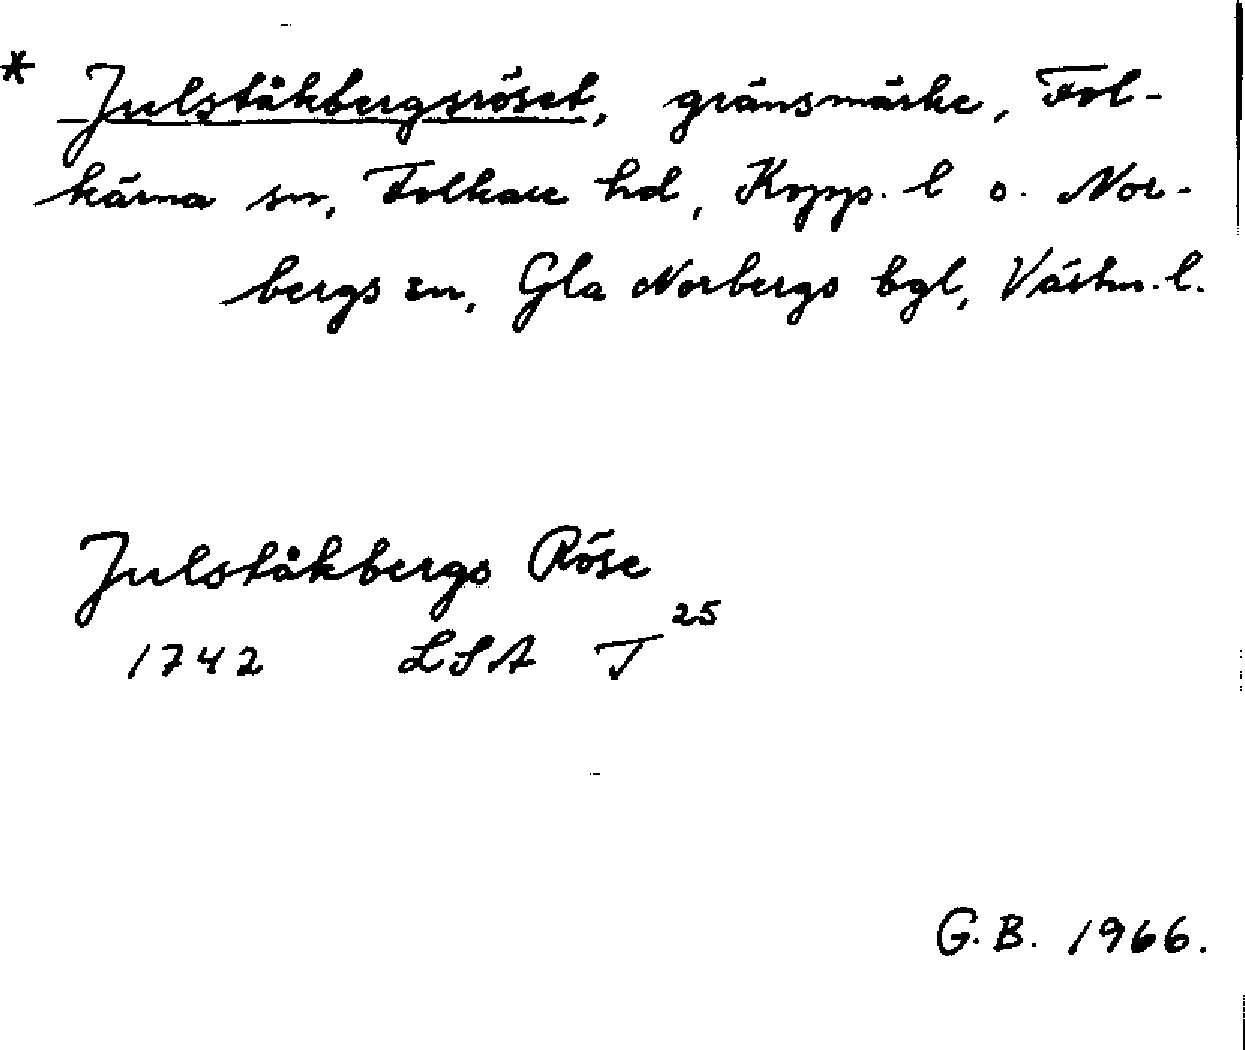 * Julståkbergsröset, gränsmärke, Fol-
kärna sn, Folkare hd, Kopp. l o. Nor-
bergs sn, Gla Norbergs bgl, Västm. l.
Julståkbergs Röse
1742 LSA T 25
G.B. 1966.